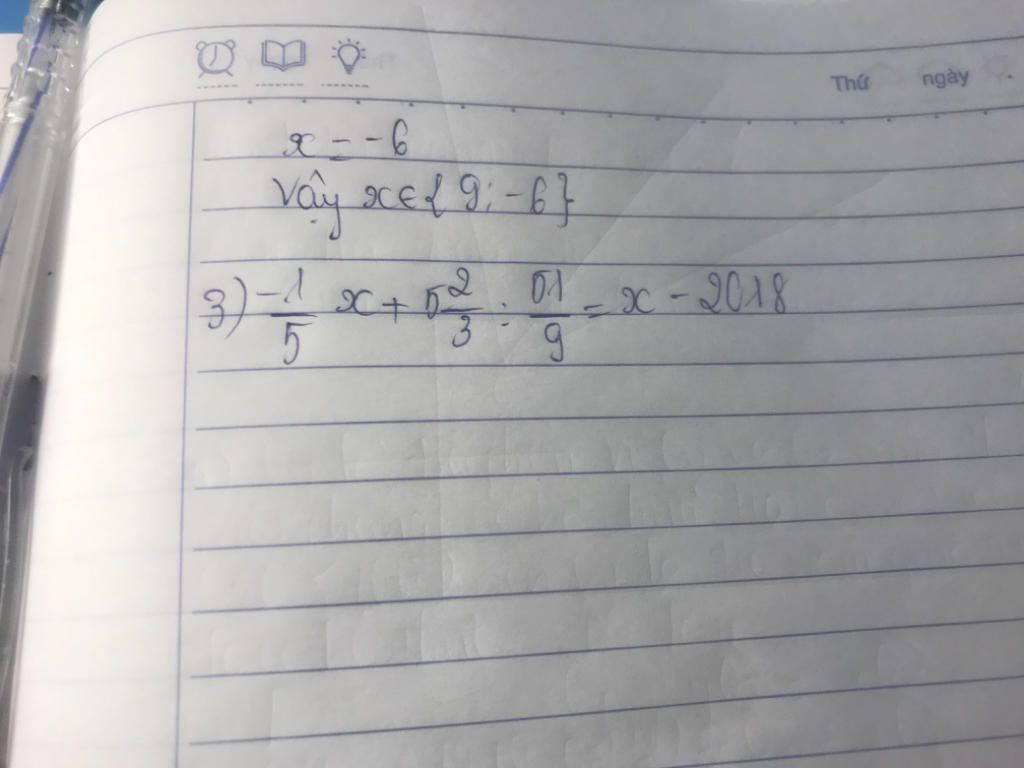 Thứ ngày
x = -6
Vậy x ∈ { 9; -6 }
3) -1/5 x + 5 2/3 : 51/9 = x - 2018